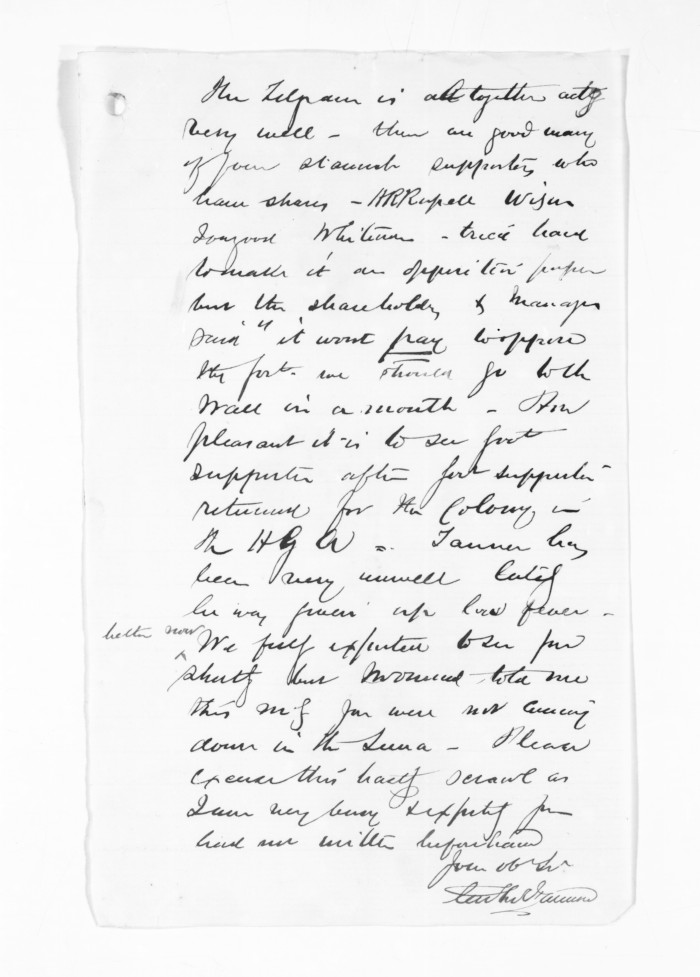 The Telegram is altogether actg
very well – there are good many
of your staunch supporters who
have shares – HR Russell Wilson
Whitmore – tried hard
to make it an opposition paper
but the shareholders & Manager
said "it wont pay to oppose
the govt. we should go to the
Wall in a month – How
pleasant it is to see govt
supporter after govt supporter
returned for the Colony in
the H G A –. Tanner has
been very unwell lately
he was given up low fever –
better now
We fully expected to see you
shortly but told me
this mg you were not coming
down in the Luna – Please
excuse this hasty scrawl as
I am very busy & expectg you
had not written beforehand
Your ob Sr